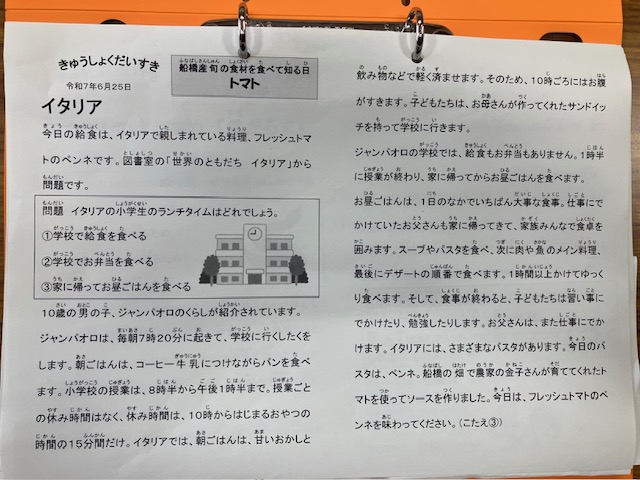 きゅうしょくだいすき
令和7年6月25日
船橋産旬の食材を食べて知る日
トマト
イタリア
今日の給食は、イタリアで親しまれている料理、フレッシュトマ
トのペンネです。図書室の「世界のともだち イタリア」から
問題です。
問題 イタリアの小学生のランチタイムはどれでしょう。
①学校で給食を食べる
②学校でお弁当を食べる
③家に帰ってお昼ごはんを食べる
10歳の男の子、ジャンパオロのくらしが紹介されています。
ジャンパオロは、毎朝7時20分に起きて、学校に行くしたくを
します。朝ごはんは、コーヒー牛乳につけながらパンを食べ
ます。小学校の授業は、8時半から午後1時半まで。授業ごと
の休み時間はなく、休み時間は、10時からはじまるおやつの
時間の15分間だけ。イタリアでは、朝ごはんは、甘いおかしと
飲み物などで軽く済ませます。そのため、10時ごろにはお腹
がすきます。子どもたちは、お母さんが作ってくれたサンドイッ
チを持って学校に行きます。
ジャンパオロの学校では、給食もお弁当もありません。1時半
に授業が終わり、家に帰ってからお昼ごはんを食べます。
お昼ごはんは、1日のなかでいちばん大事な食事。仕事にで
かけていたお父さんも家に帰ってきて、家族みんなで食卓を
囲みます。スープやパスタを食べ、次に肉や魚のメイン料理、
最後にデザートの順番で食べます。1時間以上かけてゆっく
り食べます。そして、食事が終わると、子どもたちは習い事に
でかけたり、勉強したりします。お父さんは、また仕事にでか
けます。イタリアには、さまざまなパスタがあります。今日のパ
スタは、ペンネ。船橋の畑で農家の金子さんが育ててくれたト
マトを使ってソースを作りました。今日は、フレッシュトマトのペ
ンネを味わってください。（こたえ③）